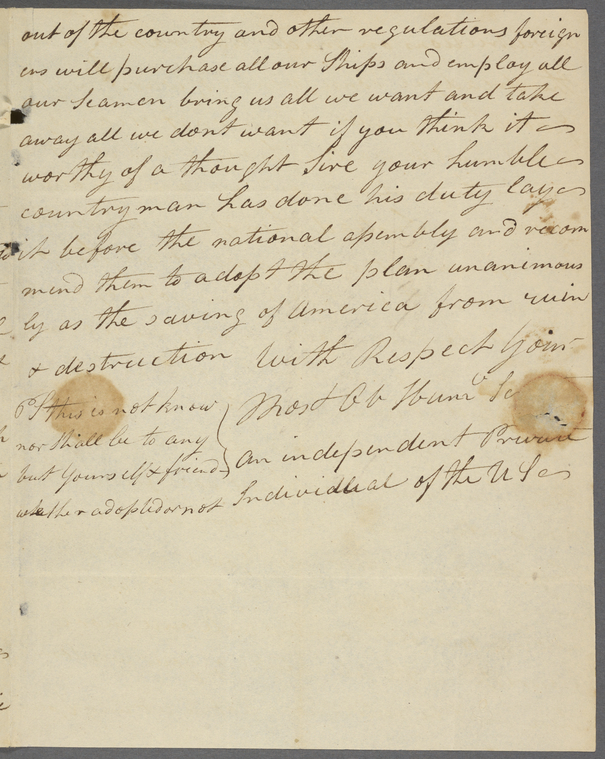 out of the country and other regulations foreign
ers will purchase all our Ships and employ all
our Seamen bring us all we want and take
away all we dont want if you think it
worthy of a thought Sire your humble
countryman has done his duty lay
it before the national assembly and recom
mend them to adopt the plan unanimous
ly as the saving of America from ruin
& destruction With Respect Your
Most Ob Huml Se
an independent Private
Individual of the U S
PS this is not know
nor Shall be to any
but yourself & friend
whether adopted or not